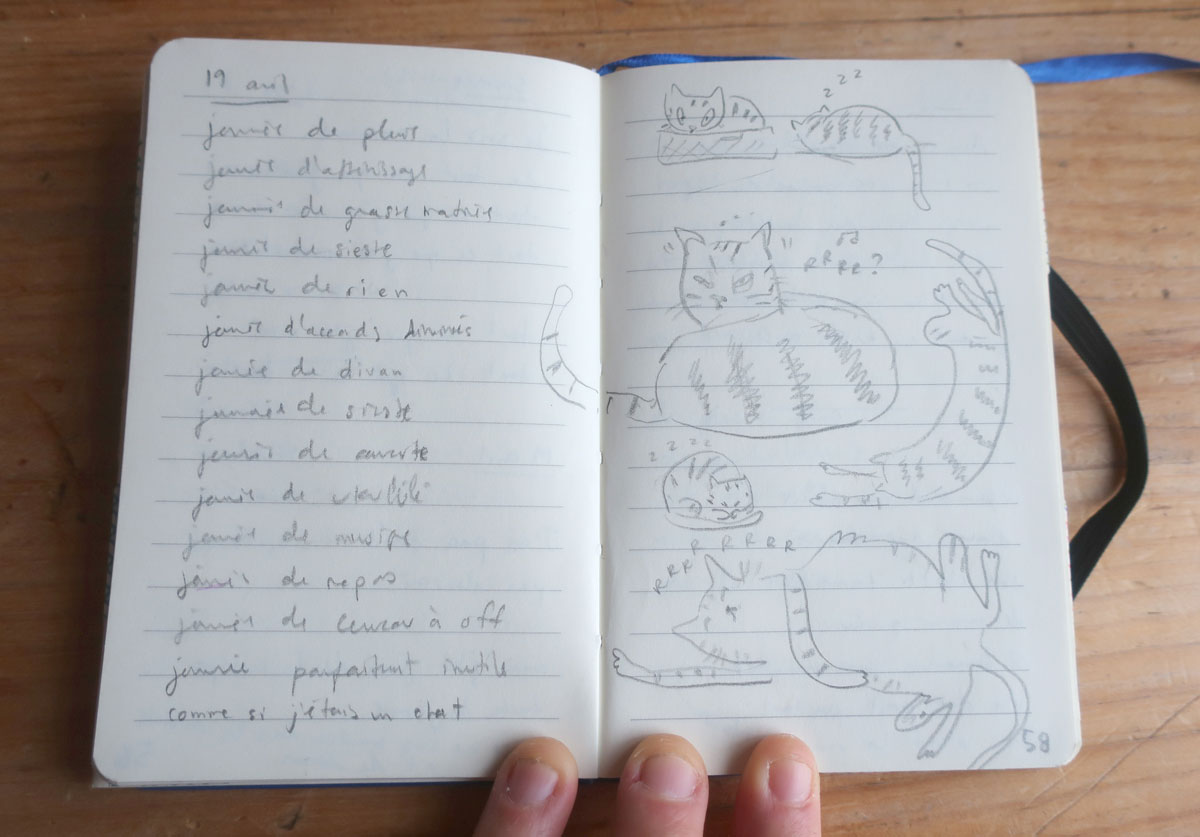 19 avril
journée de pluie
journée
journée de grasse matinée
journée de sieste
journée de rien
journée d'accords diminués
journée de divan
journée de sieste
journée de couverte
journée de
journée de musique
journée de repos
journée de cerveau à off
journée parfaitement inutile
comme si j'étais un chat
z z z
R R R R ?
z z z z
R R R R R R R R
58